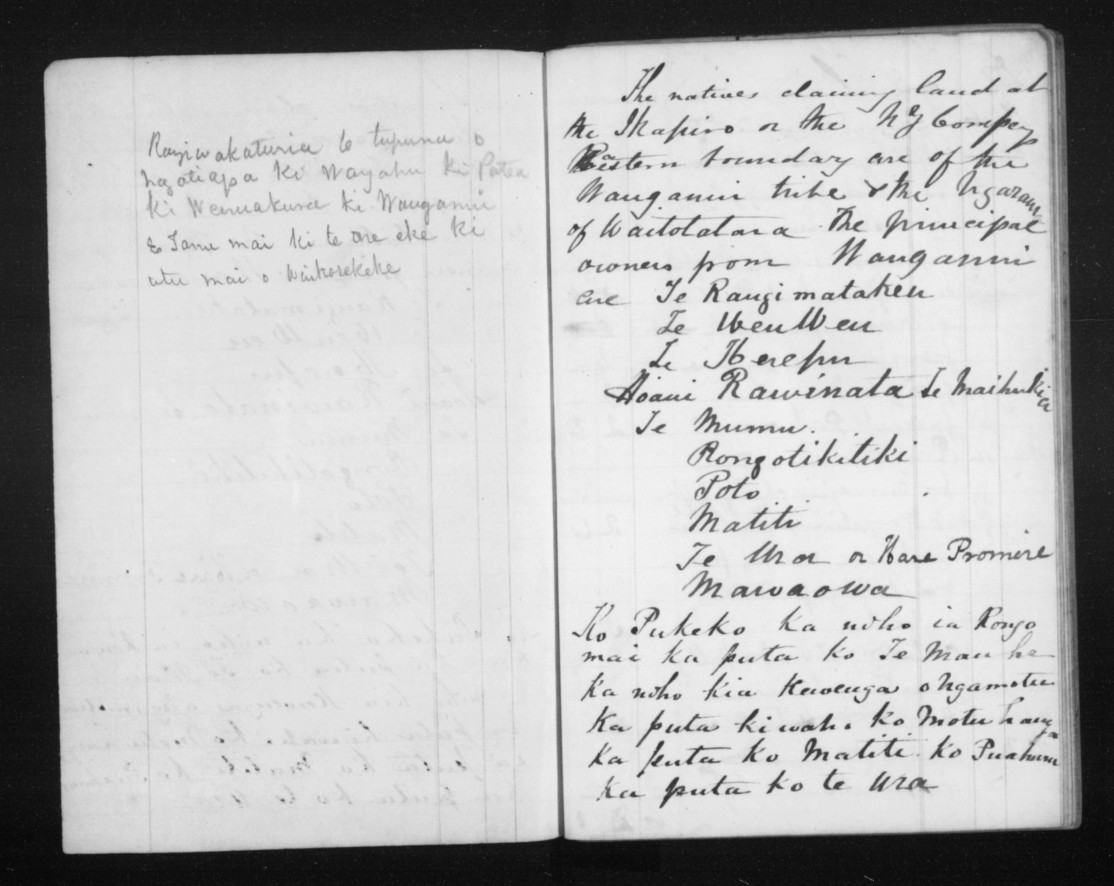 Rangiwakaturia te tupuna o
Ngatiapa ki Wayahu ki Patea
ki Wenuakura ki Wanganui
E Tanu mai ki te are eke ki
utu mai o
The natives claiming land at
the Ikapiro or the NZ Compy
Western boundary are of the
Wanganui tribe & the Ngaraum
of Waitotatara The principal
owners from Wanganui
are Te Rangimatakeu
Te WeuWeu
Te Herepu
Hoani Rawinata Te Maihukia
Te Mumu.
Rongotikitiki
Poto
Matiti
Te Ura or Hare Promire
Mawaowa
Ko Pukeko ka noho ia Rongo
mai ka puta ko Te Mau he
ka noho kia Kewenga o Ngamotu
Ka puta ki waho ko Motuhanga
ka puta ko Matiti. ko Puahuru
ka puta ko te Ura